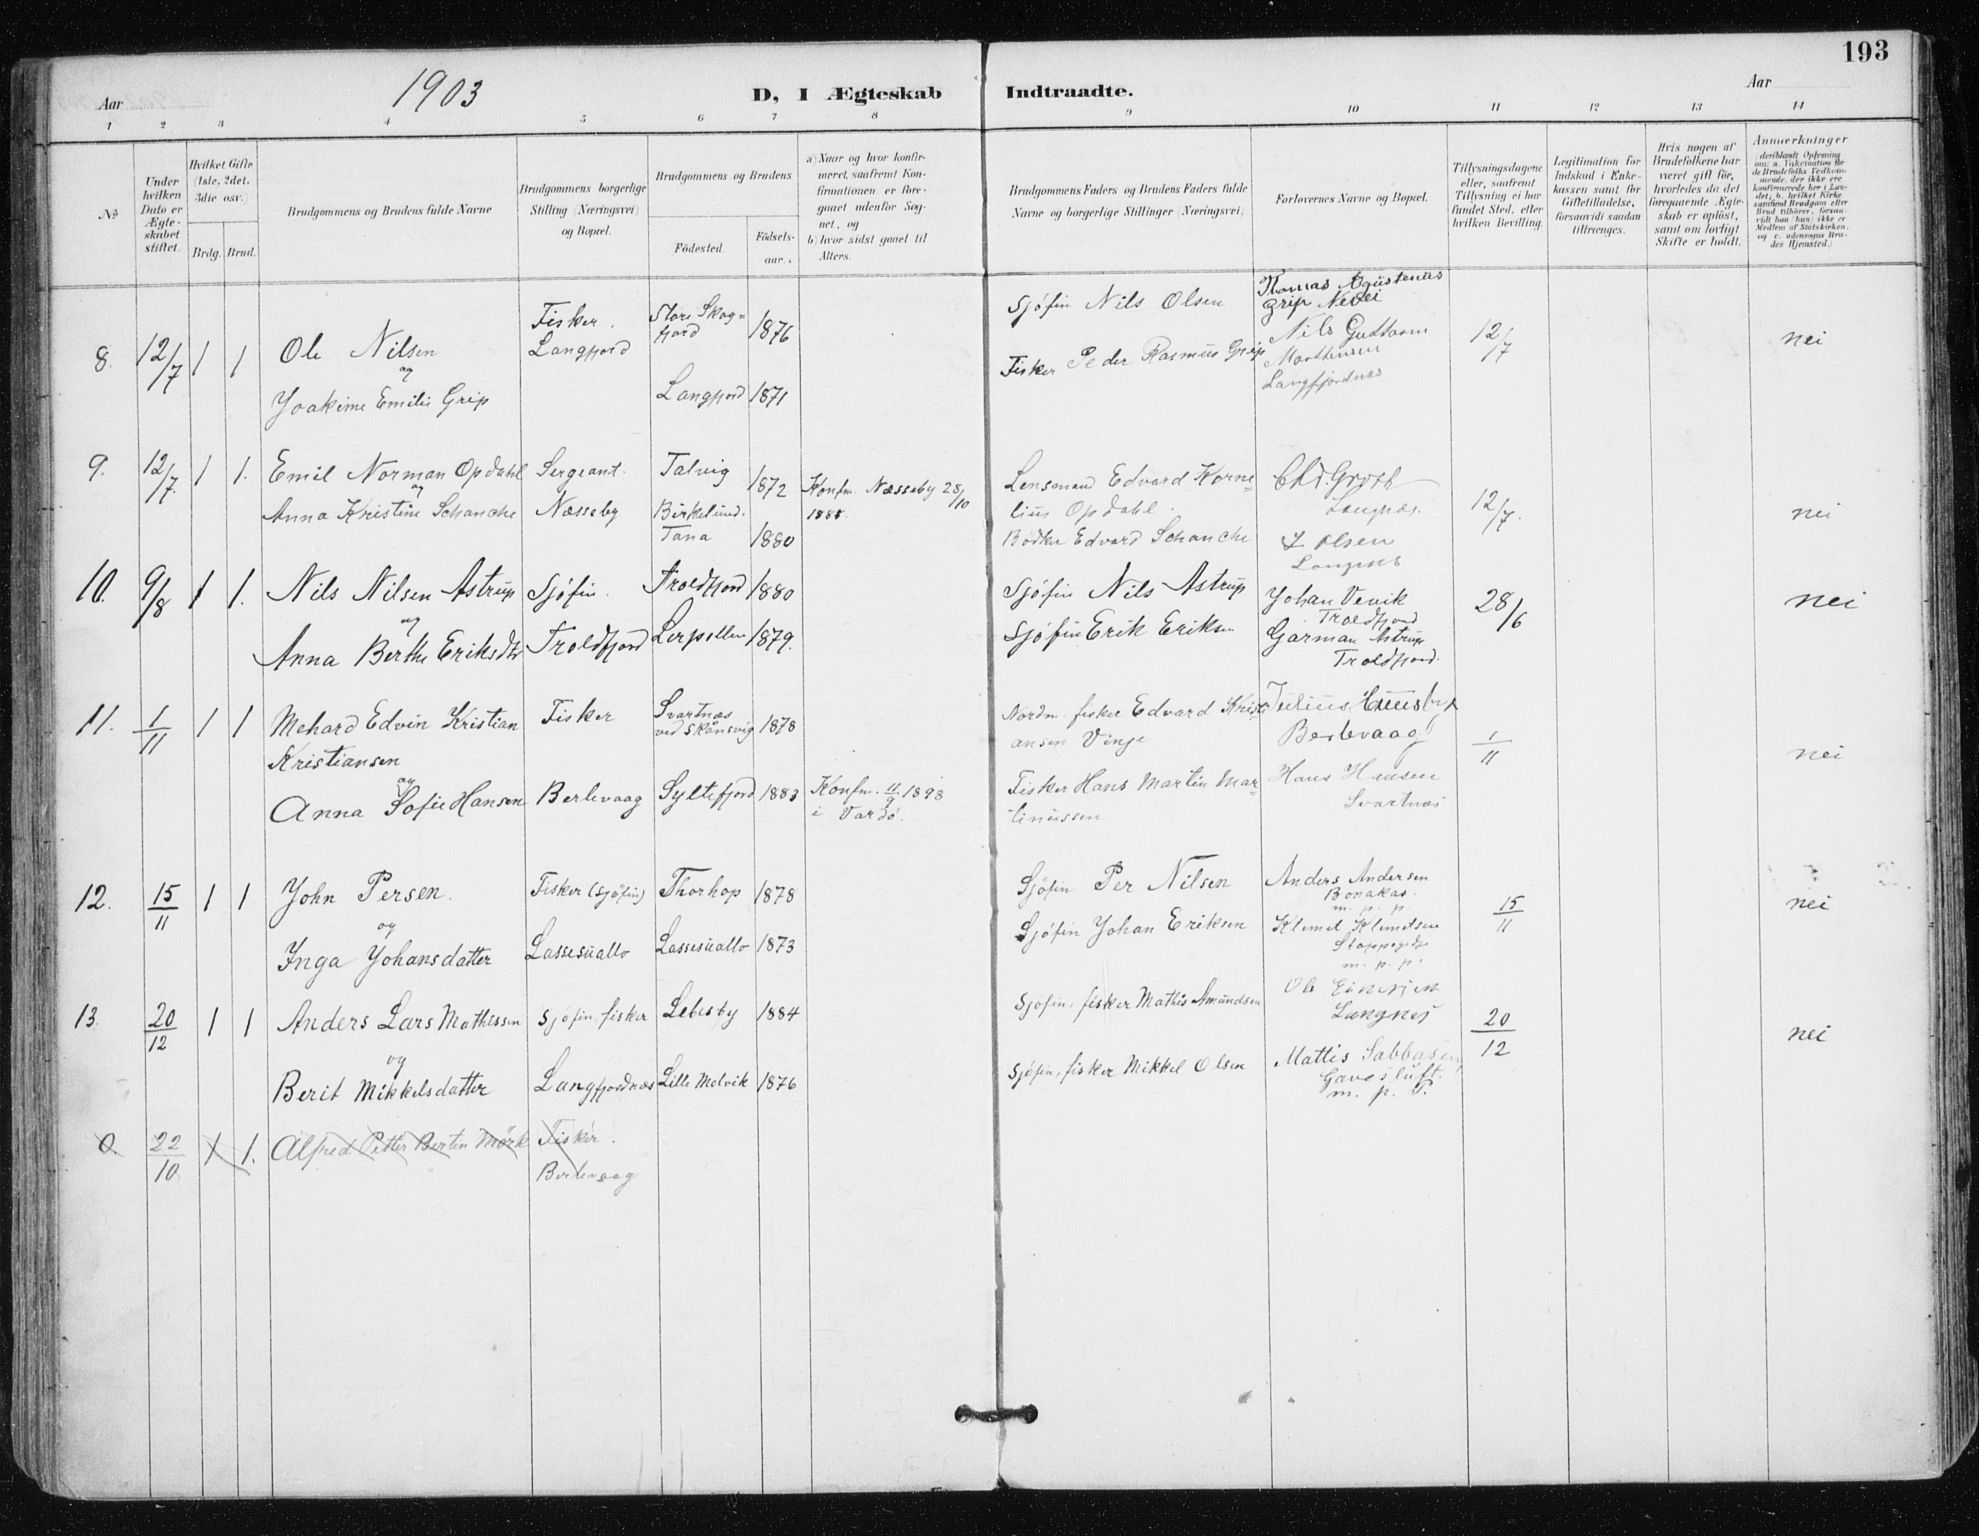 193
Aar 1903 D, I Ægteskab Indtraadte. Aar
1 2 3 4 5 6 7 8 9 10 11 12 13 14
No
Under hvilken Dato er Ægteskabet stiftet.
Hvilket Gifte (1ste, 2det, 3die osv.)
Brdg. Brud.
Brudgommens og Brudens fulde Navne
Brudgommens borgerlige Stilling (Næringsvei) og Bopæl.
Brudgommens og Brudens
Fødested. Fødsels-aar.
a) Naar og hvor konfirmeret, saafremt Konfirmationen er foregaaet udenfor Sognet, og
b) hvor sidst gaaet til Alters.
Brudgommens Faders og Brudens Faders fulde Navne og borgerlige Stillinger (Næringsvei)
Forlovernes Navne og Bopæl.
Tillysningsdagene eller, saafremt Tillysning ei har fundet Sted, efter hvilken Bevilling.
Legitimation for Indskud i Enkekassen samt for Giftetilladelse, forsaavidt saadan tiltrænges.
Hvis nogen af Brudefolkene har været gift før, hvorledes da det foregaaende Ægteskab er opløst, samt om lovligt Skifte er holdt.
Anmerkninger
(deriblandt Oplysning om: a. Vakcination for de Brudefolks Vedkommende, der ikke ere konfirmerede her i Landet; b. hvilket Kirkesamfund Brudgom eller Brud tilhører, forsaavidt han (hun) ikke er Medlem af Statskirken, og c. udensogns Brudes Hjemsted.)
8. 12/7 1 1 Ole Nilsen
og
Joakime Emilie Grip
Fisker.
Langfjord
Store Skogfjord 1876
Langfjord 1871
Sjöfin Nils Olsen
Fisker Peder Rasmus Grip
Thomas Agustenus
Grip Nervei
Nils Gudtorm
Morthensen
Langfjordnes
12/7
nei
9. 12/7. 1 1. Emil Norman Opdahl
og
Anna Kristine Schanche
Sergeant.
Næsseby
Talvig 1872
Birkelund.
Tana 1880
Konfm. Næsseby 28/10
1888.
Lensmand Edvard Korne=
lius Opdahl.
Bödker Edvard Schanche
Chr. Groth
Langnæs.
L Olsen
Langnes
12/7.
nei
10. 9/8 1 1. Nils Nilsen Astrup
og
Anna Berthe Eriksdtr
Sjöfin.
Troldfjord
Troldfjord 1880
Lerpollen 1879.
Sjöfin Nils Astrup
Sjöfin Erik Eriksen
Johan Vevik
Troldfjord
Garman Astrup
Troldfjord.
28/6
nei
11. 1/11 1 1 Mehard Edvin Kristian
Kristiansen
og
Anna Sofie Hansen
Fisker
Berlevaag
Svartnæs
ved Skånsvig 1878
Syltefjord 1883
Konfm. 11/9 1898
i Vardö.
Nordm. fisker Edvard Kristi
ansen Vinje
Fisker Hans Martin Mar=
tinussen
Julius Huusby
Berlevaag
Hans Hansen
Svartnæs
1/11
nei
12. 15/11 1 1 John Persen.
og
Inga Johansdatter
Fisker (Sjöfin)
Lassesuallo
Thorhop 1878
Lassesuallo 1873
Sjöfin Per Nilsen
Sjöfin Johan Eriksen
Anders Andersen
Bonakas.
m. p. p.
Klemet Klemetsen
m. p. p.
15/11
nei
13. 20/12 1 1 Anders Lars Mathissen
og
Berit Mikkelsdatter
Sjöfin, fisker
Langfjordnæs
Lebesby 1884
Lille Molvik 1876
Sjöfin, fisker Mathis Amundsen
Sjöfin, fisker Mikkel Olsen
Ole
Langnes
Mattis Sabbasen
Gavesluft.
m. p. P.
20/12
nei
0. 22/10 1 1. Alfred Petter Bertin Mörk
Fisker.
Berlevaag